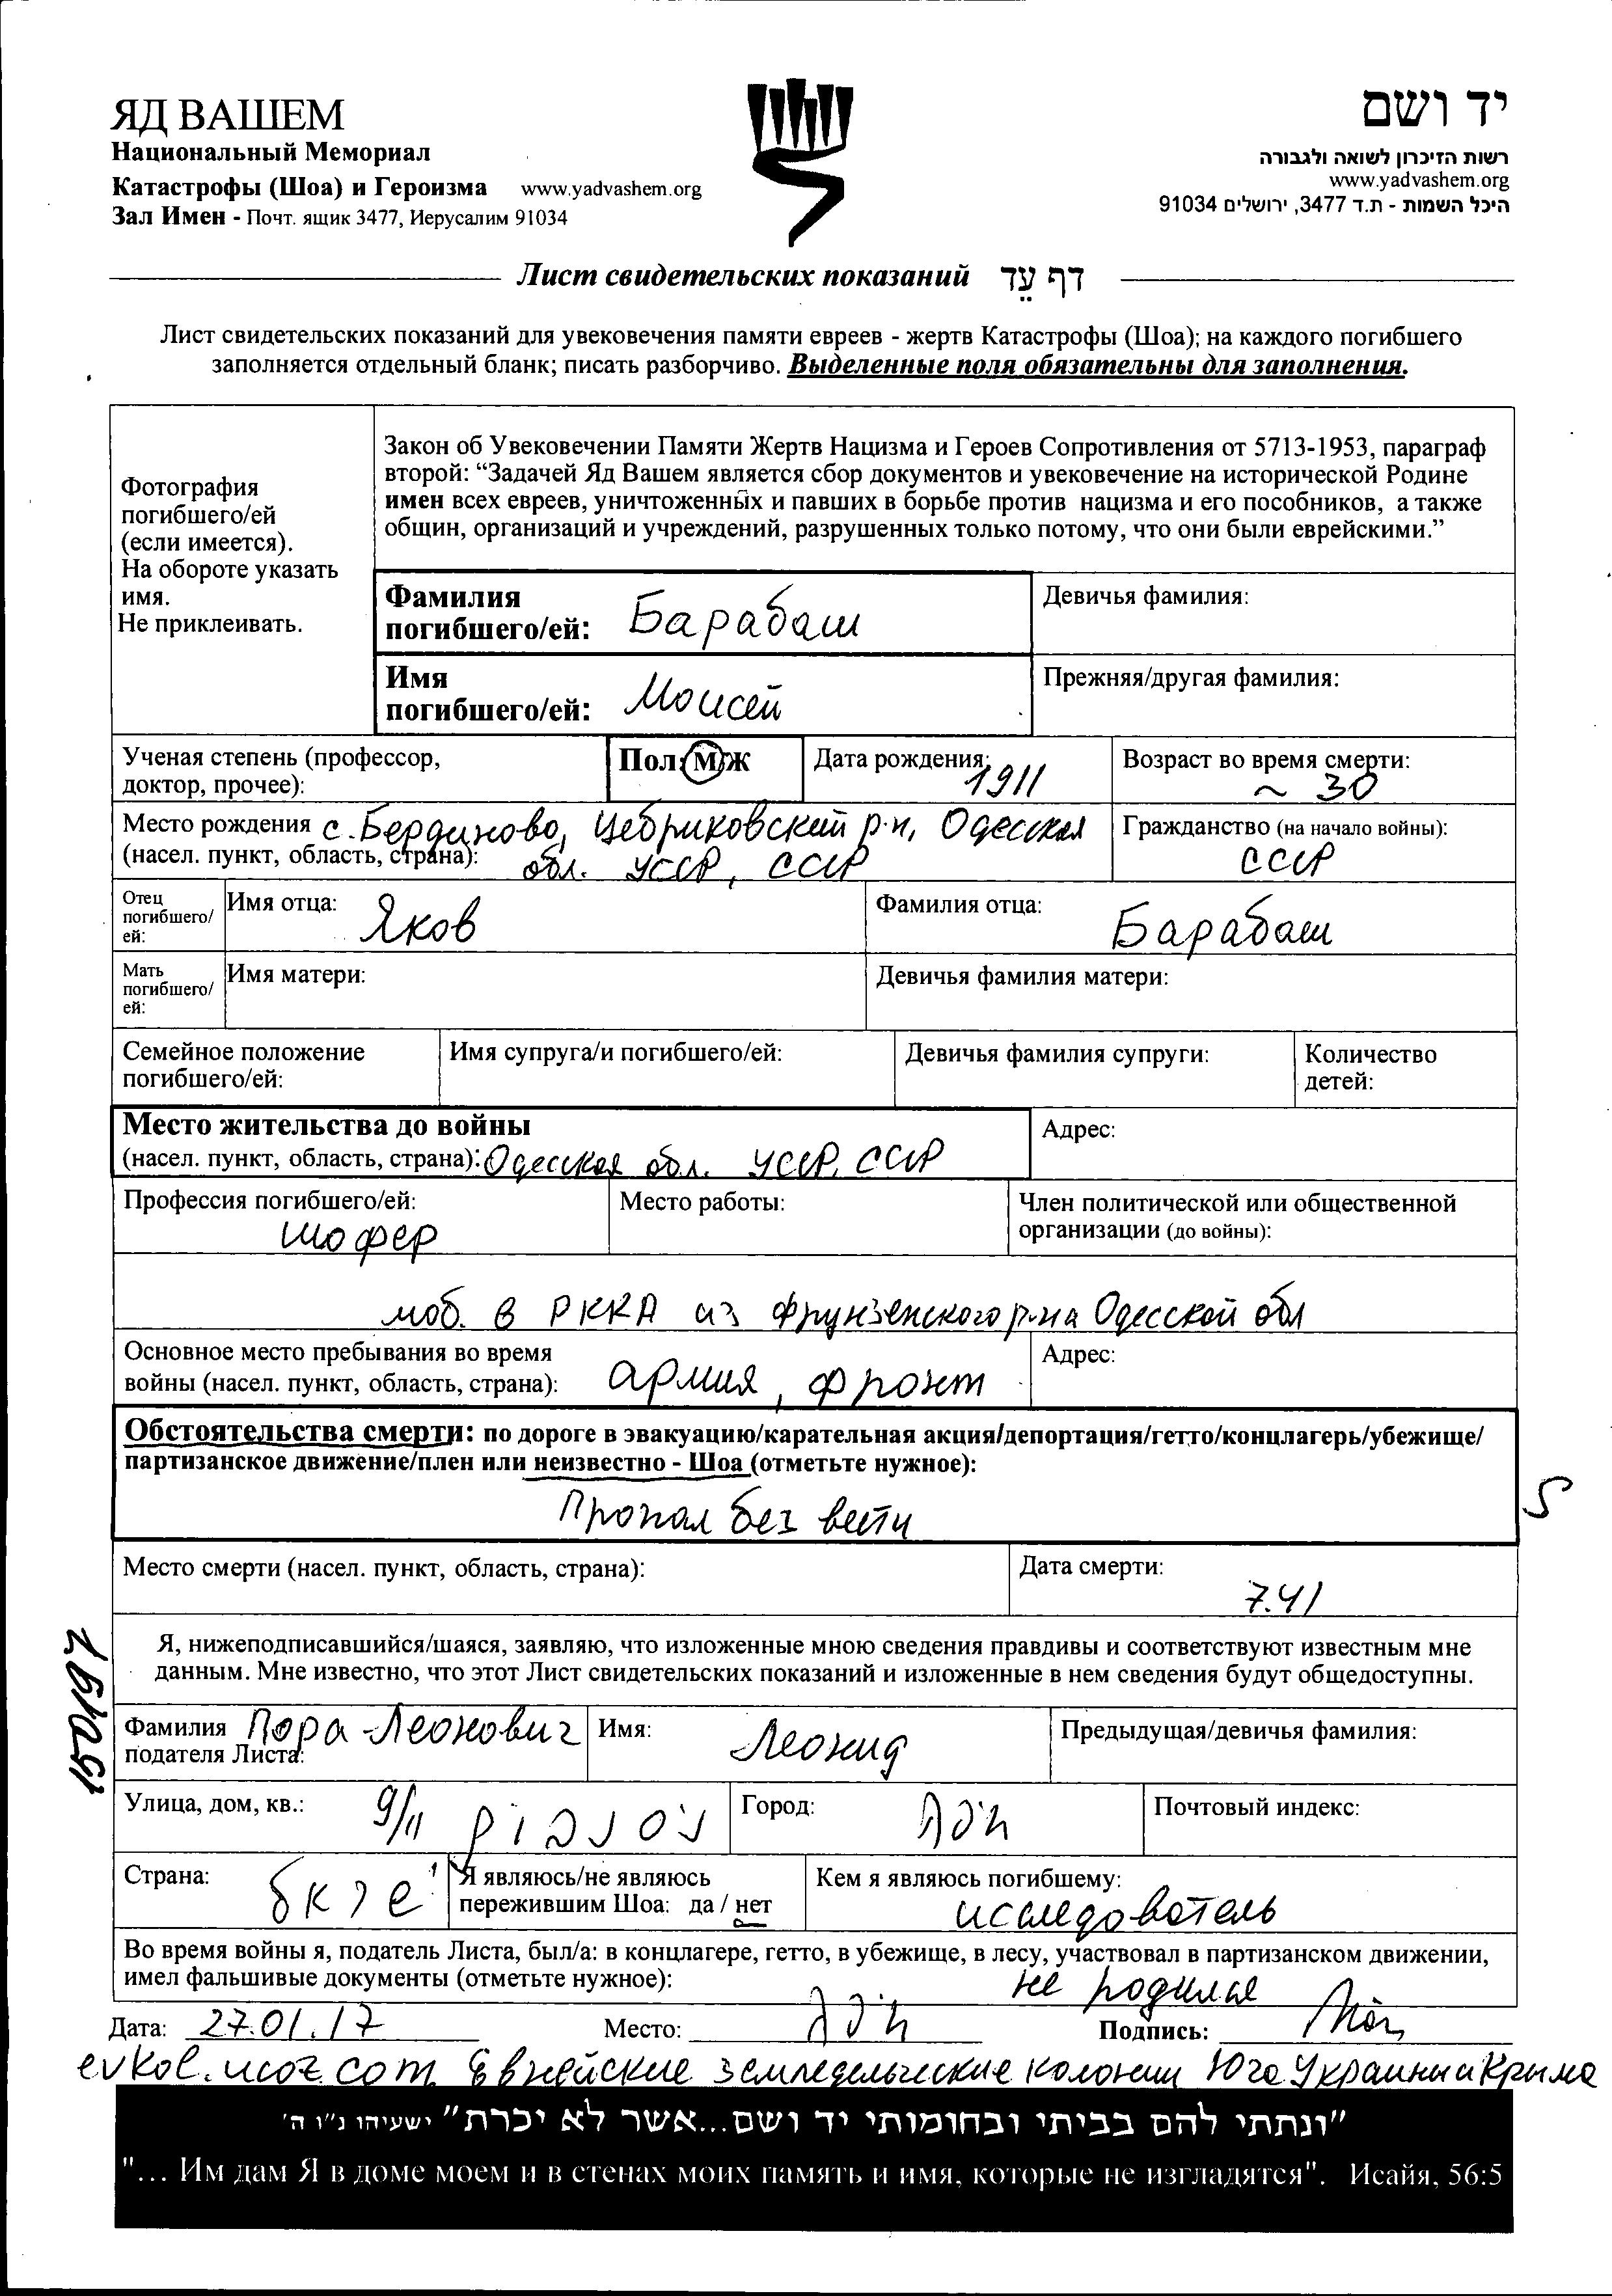 ЯД ВАШЕМ
Национальный Мемориал
Катастрофы (Шоа) и Героизма www.yadvashem.org
Зал Имен - Почт. ящик 3477, Иерусалим 91034
יד ושם
רשות הזיכרון לשואה ולגבורה
www.yadvashem.org
היכל השמות - ת.ד 3477, ירושלים 91034
Лист свидетельских показаний דף עֵד
Лист свидетельских показаний для увековечения памяти евреев - жертв Катастрофы (Шоа); на каждого погибшего
заполняется отдельный бланк; писать разборчиво. Выделенные поля обязательны для заполнения.
Фотография
погибшего/ей
(если имеется).
На обороте указать
имя.
Не приклеивать.
Закон об Увековечении Памяти Жертв Нацизма и Героев Сопротивления от 5713-1953, параграф
второй: “Задачей Яд Вашем является сбор документов и увековечение на исторической Родине
имен всех евреев, уничтоженных и павших в борьбе против нацизма и его пособников, а также
общин, организаций и учреждений, разрушенных только потому, что они были еврейскими.”
Фамилия
погибшего/ей: Барабаш
Девичья фамилия:
Имя
погибшего/ей: Моисей
Прежняя/другая фамилия:
Ученая степень (профессор,
доктор, прочее):
Пол: М/Ж
Дата рождения: 1911
Возраст во время смерти:
~ 30
Место рождения с. Бердиново, Цебриковский р-н, Одесская
(насел. пункт, область, страна): обл. УССР, СССР
Гражданство (на начало войны):
СССР
Отец
погибшего/
ей:
Имя отца: Яков
Фамилия отца: Барабаш
Мать
погибшего/
ей:
Имя матери:
Девичья фамилия матери:
Семейное положение
погибшего/ей:
Имя супруга/и погибшего/ей:
Девичья фамилия супруги:
Количество
детей:
Место жительства до войны
(насел. пункт, область, страна): Одесская обл. УССР, СССР
Адрес:
Профессия погибшего/ей:
шофер
Место работы:
Член политической или общественной
организации (до войны):
моб. в РККА из Фрунзенского р-на Одесской обл
Основное место пребывания во время
войны (насел. пункт, область, страна): армия, фронт
Адрес:
Обстоятельства смерти: по дороге в эвакуацию/карательная акция/депортация/гетто/концлагерь/убежище/
партизанское движение/плен или неизвестно - Шоа (отметьте нужное):
Пропал без вести
S
Место смерти (насел. пункт, область, страна):
Дата смерти:
7.41
Я, нижеподписавшийся/шаяся, заявляю, что изложенные мною сведения правдивы и соответствуют известным мне
данным. Мне известно, что этот Лист свидетельских показаний и изложенные в нем сведения будут общедоступны.
Фамилия Пора-Леонович
подателя Листа:
Имя: Леонид
Предыдущая/девичья фамилия:
Улица, дом, кв.: 9/11
Город:
Почтовый индекс:
Страна:
Я являюсь/не являюсь
пережившим Шоа: да / нет
Кем я являюсь погибшему:
исследователь
Во время войны я, податель Листа, был/а: в концлагере, гетто, в убежище, в лесу, участвовал в партизанском движении,
имел фальшивые документы (отметьте нужное): не родился
Дата: 27.01.17 Место: Подпись:
evkol.ucoz.com Еврейские земледельческие колонии Юга Украины и Крыма
"ונתתי להם בביתי ובחומותי יד ושם...אשר לא יכרת" ישעיהו נ"ו ה'
"... Им дам Я в доме моем и в стенах моих память и имя, которые не изгладятся". Исайя, 56:5